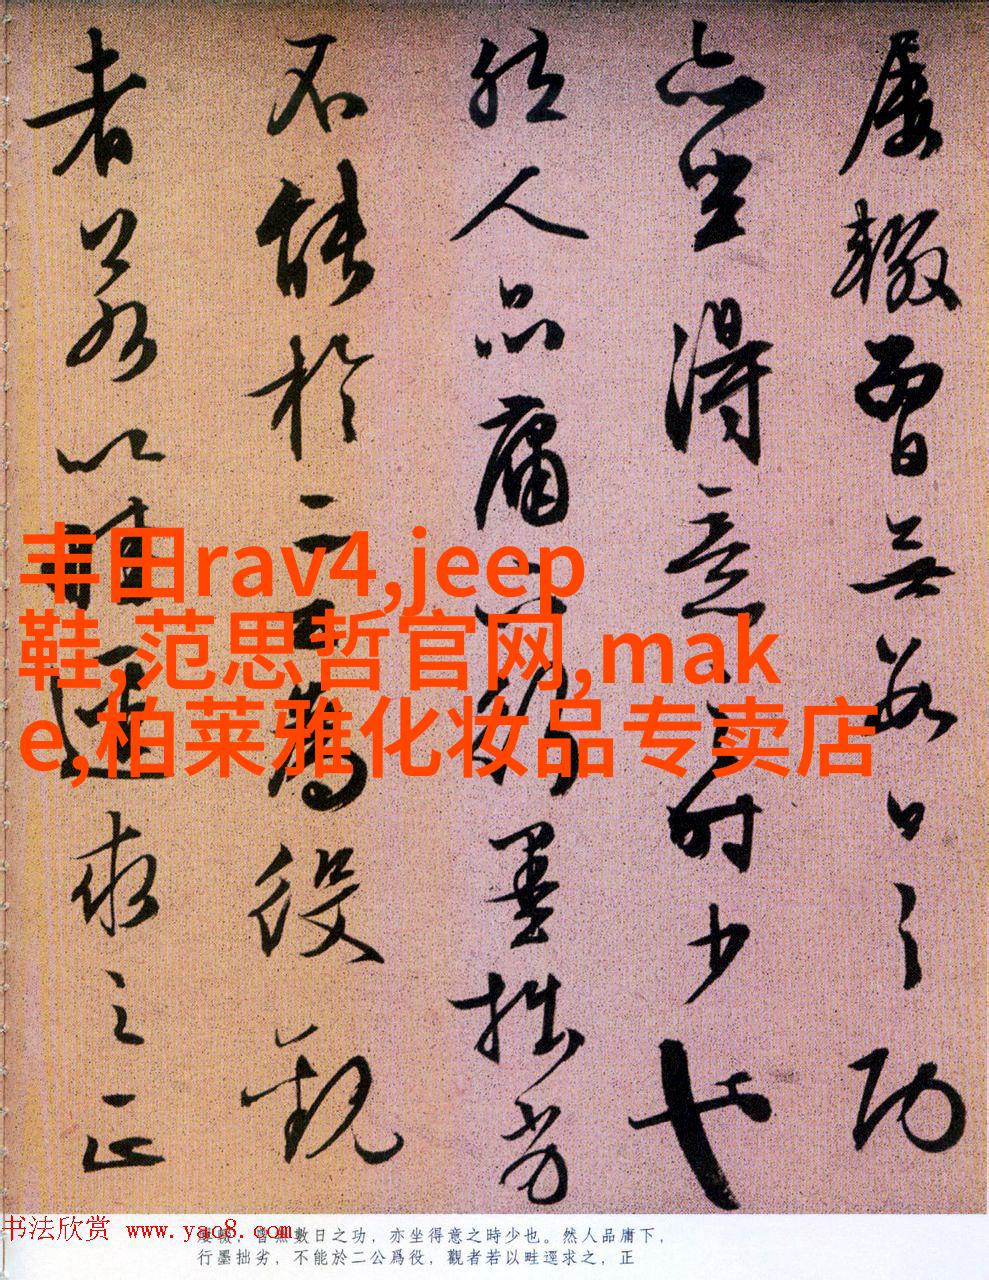 屢輟曾無數日之功
亦坐得意之時少也
然人品庸下行墨拙劣
不能於二公為役觀
者若以畦逕求之正
丰田rav4,jeep
鞋,范思哲官网,mak
e,柏莱雅化妆品专卖店
书法欣赏 www.yac8.com
屢輟，曾無數日之功，亦坐得意之時少也。然人品庸下，
行墨拙劣，不能於二公爲役，觀者若以畦逕求之，正